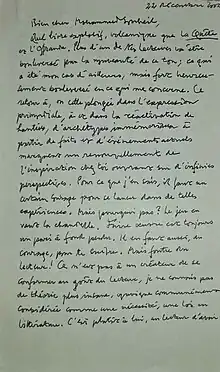 22 décembre 2002
Bien cher Mohammed Souheil,
Quel livre explosif, volcanique que le Conte
de l'Ofrande. Plus d'un de tes lecteurs va être
bouleversé par la nouveauté de ce ton, ce qui
a été mon cas d'ailleurs, mais fort heureu-
sement bouleversé en ce qui me concerne. Ce
retour à, cette plongée dans l'expression
primitiale, à et dans la réactivation de
hantises, d'archétypes immémoriaux à
partir de faits et d'événements actuels
marquent un renouvellement de
l'inspiration chez toi ouvrant sur d'infinies
perspectives. Pour ce que j'en sais, il faut un
certain courage pour se lancer dans de telles
expériences. Mais pourquoi pas? Le jeu en
vaut la chandelle. Faire œuvre est toujours
un pari à fonds perdus. Il en faut aussi, du
courage, pour te suivre. Mais foutre du
lecteur! Ce n'est pas à un créateur de se
conformer au goût du lecteur, je ne connais pas
de théorie plus insane, quoique communément
considérée comme une nécessité, une loi en
littérature. C'est plutôt à lui, au lecteur d'avoir